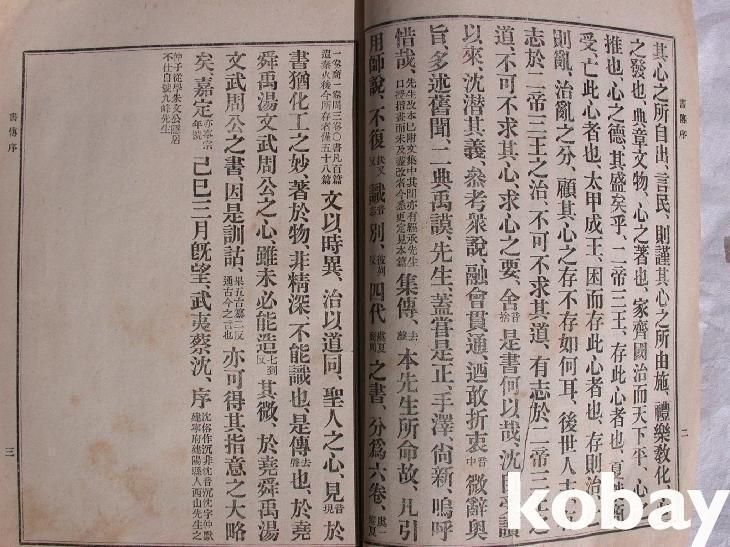 其心之所自出、言民、則謹其心之所由施、禮樂敎化、心
之發也、典章文物、心之著也、家齊國治而天下平、心之
推也、心之德、其盛矣乎、二帝三王、存此心者也、夏桀商
受、亡此心者也、太甲成王、困而存此心者也、存則治、亡
則亂、治亂之分、顧其心之存不存如何耳、後世人主、有
志於二帝三王之治、不可不求其道、有志於二帝三王之
道、不可不求其心、求心之要、舍音捨是書何以哉、沈自受讀
以來、沈潛其義、參考衆說、融會貫通、迺敢折衷音中微辭奧
旨、多述舊聞、二典禹謨、先生、蓋嘗是正、手澤、尙新、嗚呼
惜哉、先生改本已附文集中其間亦有經承先生口授指畫而未及盡改者今悉更定見本篇集傳、去聲本先生所命故、凡引
用師說、不復扶又反識音志別、彼列反四代虞夏商周之書、分爲六卷、虞一卷夏
一卷商一卷周三卷〇書凡百篇遭秦火後今所存者僅五十八篇文以時異、治以道同、聖人之心、見音現於
書猶化工之妙、著於物、非精深不能識也、是傳去聲也、於堯
舜禹湯文武周公之心、雖未必能造七到反其微、於堯舜禹湯
文武周公之書、因是訓詁、果五古慕二反通古今之言也亦可得其指意之大略
矣、嘉定亦寧宗年號己巳三月旣望、武夷蔡沈、序沈俗作沉非沈音沉沈字仲默建寧府建陽縣人西山先生之
仲子從學朱文公隱居不仕自號九峰先生
書傳序
二
書傳序
三
kobay